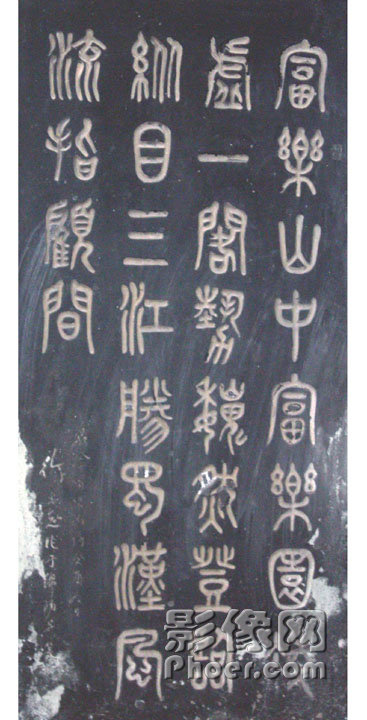 富樂山中富樂園
虛一閣勢巍然登臨
縱目三江勝蜀漢風
流指顧間
影像网
Phoer.com